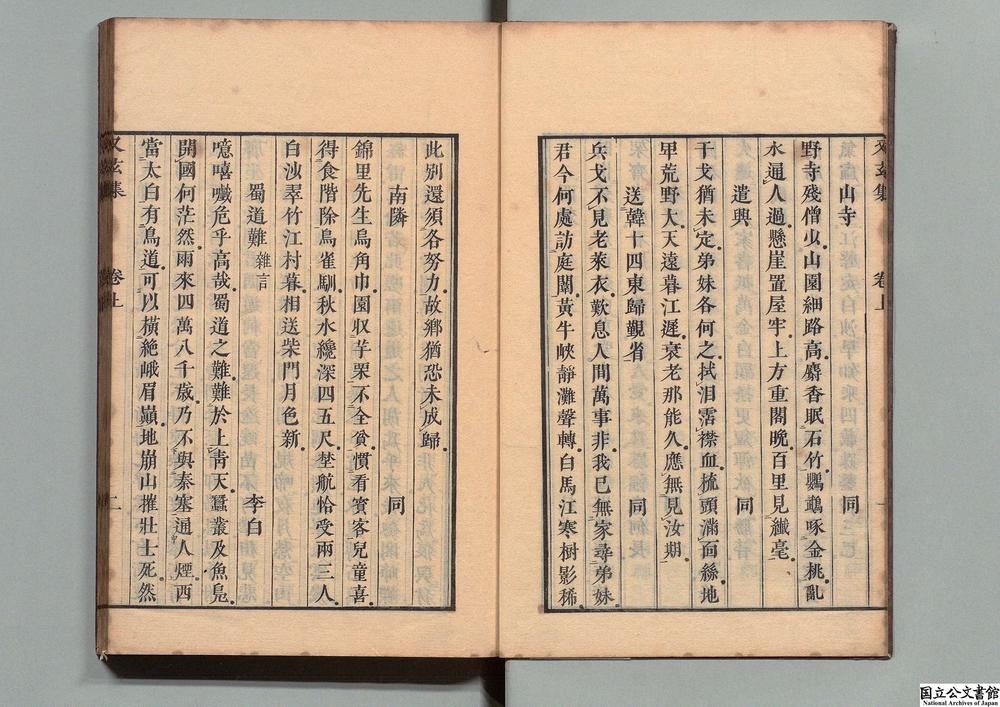 山寺 同
野寺殘僧少山園細路高麝香眠石竹鸚鵡啄金桃亂
水通人過懸崖置屋牢上方重閣晚百里見纖毫
遣興 同
干戈猶未定弟妹各何之拭泪霑襟血梳頭滿面絲地
卑荒野大天遠暮江遲衰老那能久應無見汝期
送韓十四東歸覲省 同
兵戈不見老萊衣歎息人間萬事非我已無家尋弟妹
君今何處訪庭闈黃牛峽靜灘聲轉白馬江寒樹影稀
又玄集 卷上
此別還須各努力故鄉猶恐未成歸
南隣 同
錦里先生烏角巾園收芋栗不全貧慣看賓客兒童喜
得食階除鳥雀馴秋水纔深四五尺埜航恰受兩三人
白沙翠竹江村暮相送柴門月色新
蜀道難 雜言 李白
噫嘻嚱危乎高哉蜀道之難難於上青天蠶叢及魚鳧
開國何茫然爾來四萬八千歲乃不與秦塞通人煙西
當太白有鳥道可以橫絶峨眉巓地崩山摧壯士死然
又玄集 卷上 二
国立公文書館
National Archives of Japan